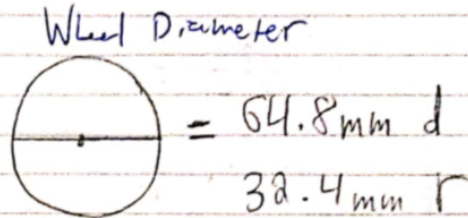 Wheel Diameter
= 64.8mm d
32.4mm r